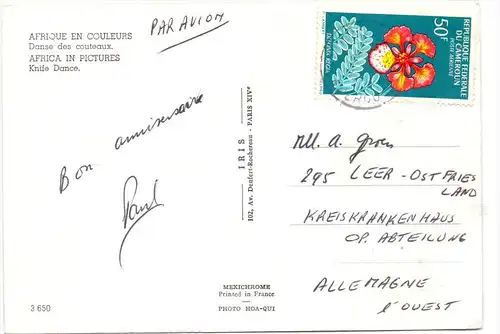 AFRIQUE EN COULEURS
Danse des couteaux.
AFRICA IN PICTURES
Knife Dance.
PAR AVION
RÉPUBLIQUE FÉDÉRALE
DU CAMEROUN
POSTE AÉRIENNE
50F
DELONIX REGIA
Bon anniversaire
Paul
IRIS
102, Av. Denfert-Rochereau - PARIS XIVe
A.
295 LEER-OSTFRIES
LAND
KREISKRANKENHAUS
OP. ABTEILUNG
ALLEMAGNE
l'OUEST
3 650
MEXICHROME
Printed in France
PHOTO HOA-QUI